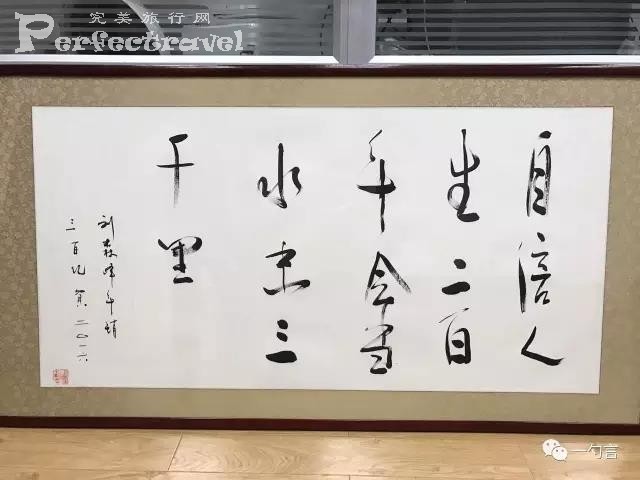 完美旅行网
Perfectravel
自信人
生二百
年会当
水击三
千里
三百 贺二〇一六
一勺言